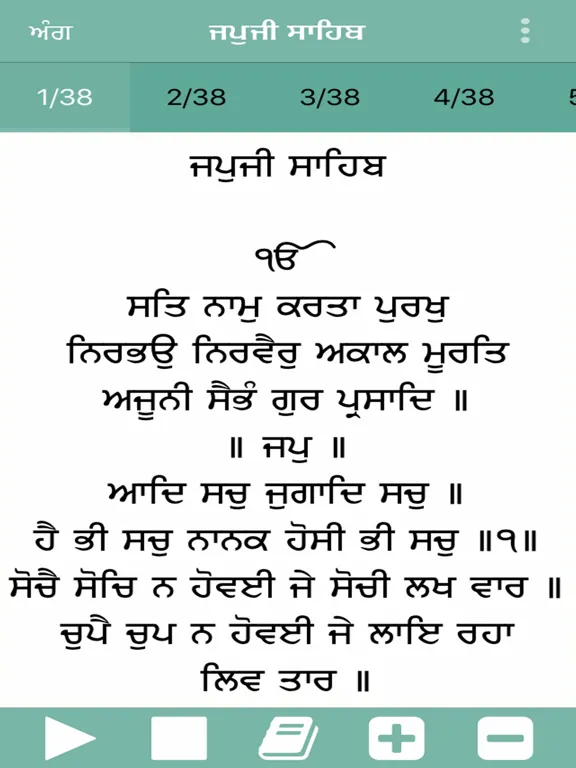 ਅੰਗ ਜਪੁਜੀ ਸਾਹਿਬ
1/38 2/38 3/38 4/38 5
ਜਪੁਜੀ ਸਾਹਿਬ
ੴ
ਸਤਿ ਨਾਮੁ ਕਰਤਾ ਪੁਰਖੁ
ਨਿਰਭਉ ਨਿਰਵੈਰੁ ਅਕਾਲ ਮੂਰਤਿ
ਅਜੂਨੀ ਸੈਭੰ ਗੁਰ ਪ੍ਰਸਾਦਿ ॥
॥ ਜਪੁ ॥
ਆਦਿ ਸਚੁ ਜੁਗਾਦਿ ਸਚੁ ॥
ਹੈ ਭੀ ਸਚੁ ਨਾਨਕ ਹੋਸੀ ਭੀ ਸਚੁ ॥੧॥
ਸੋਚੈ ਸੋਚਿ ਨ ਹੋਵਈ ਜੇ ਸੋਚੀ ਲਖ ਵਾਰ ॥
ਚੁਪੈ ਚੁਪ ਨ ਹੋਵਈ ਜੇ ਲਾਇ ਰਹਾ
ਲਿਵ ਤਾਰ ॥